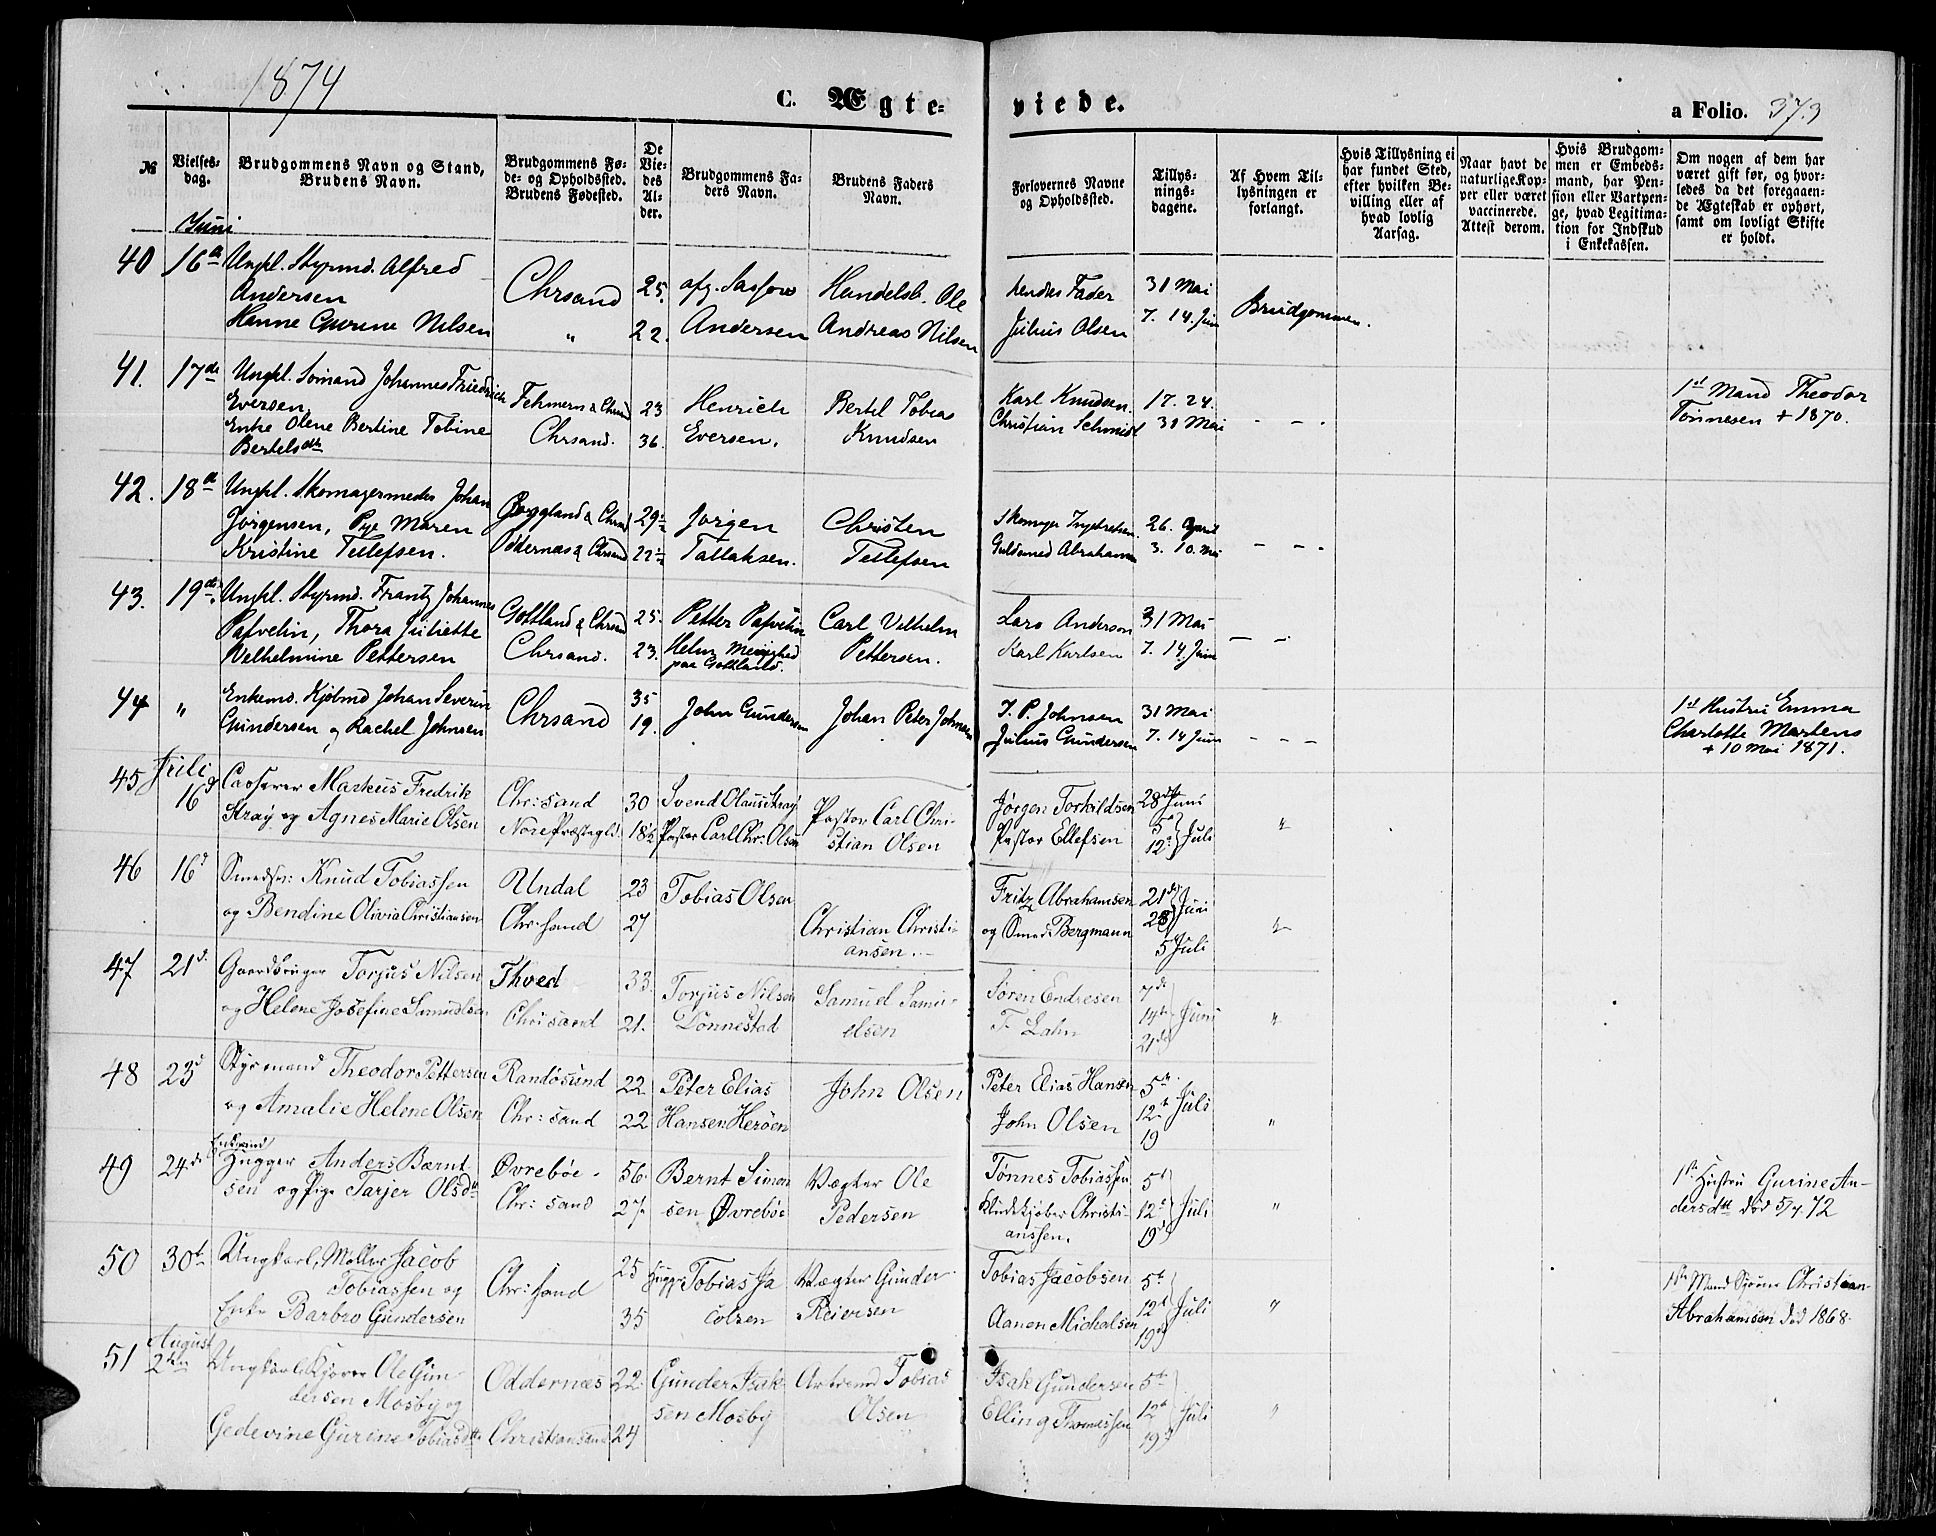 1874
C. Ægte-
viede.
a Folio. 373
№
Vielses-
dag.
Brudgommens Navn og Stand,
Brudens Navn.
Brudgommens Fø-
de- og Opholdssted.
Brudens Fødested.
De
Vie-
des
Al-
der.
Brudgommens Fa-
ders Navn.
Brudens Faders
Navn.
Forlovernes Navne
og Opholdssted.
Tillys-
nings-
dagene.
Af Hvem Til-
lysningen er
forlangt.
Hvis Tillysning ei
har fundet Sted,
efter hvilken Be-
villing eller af
hvad lovlig
Aarsag.
Naar havt de
naturlige Kop-
per eller været
vaccinerede.
Attest derom.
Hvis Brudgom-
men er Embeds-
mand, har Pen-
sion eller Vartpen-
ge, hvad Legitima-
tion for Indskud
i Enkekassen.
Om nogen af dem har
været gift før, og hvor-
ledes da det foregaaen-
de Ægteskab er ophørt,
samt om lovligt Skifte
er holdt.
Juni
40 16de Ungkl. Styrmd. Alfred
Andersen
Hanne Gurine Nilsen
Chrsand
"
25.
22.
Andersen
Handelsb. Ole
Andreas Nilsen
hendes Fader
Julius Olsen
31 Mai
7. 14. Juni
Brudgommen.
41. 17de Ungkl. Sømand Johannes Friedrich
Eversen,
Enke Olene Bertine Tobine
Bertelsdtr
Fehmern & Chrsand
Chrsand.
23
36.
Henrich
Eversen.
Bertel Tobias
Knudsen
Karl Knudsen.
Christian Schmidt
17. 24.
31 Mai
- - -
1st Mand Theodor
Tønnesen + 1870.
42. 18de Ungkl. Skomagermester Johan
Jörgensen, Pige Maren
Kristine Tellefsen.
& Chrsand
Oddernæs & Chrsand
29½
22½
Jörgen
Tallaksen.
Christen
Tellefsen
Skomager
Guldsmed Abrahamsen
26. April
3. 10. Mai
- - -
43. 19de Ungkl. Styrmd. Frantz Johannes
Pafvelin, Thora Juliette
Wilhelmine Pettersen
Gottland & Chrsand
Chrsand.
25.
23.
Petter Pafvelin
paa Gottland.
Carl Vilhelm
Pettersen.
Lars Anderson
Karl Karlsen
31 Mai
7. 14. Juni
- -
44 " Enkemd. Kjøbmd Johan Severin
Gundersen og Rachel Johnsen
Chrsand
35
19.
John Gundersen
Johan Peter Johnsen
J. P. Johnsen
Julius Gundersen
31 Mai
7. 14 Juni
- - -
1st Hustru Emma
Charlotte Martens
+ 10 Mai 1871.
Juli
45 16d Casserer Markus Fredrik
Straÿ og Agnes Marie Olsen
Chr: sand
Nore Præstegld.
30
18½
Svend Olaus Straÿ
Pastor Carl Chr: Olsen
Pastor Carl Chri-
stian Olsen
Jørgen Torkildsen
Pastor Ellefsen
28de Juni
5te
12te Juli
"
46 16d Smedsv: Knud Tobiassen
og Bendine Olivia Christiansen
Undal
Chr: sand
23
27
Tobias Olsen
Christian Christi-
ansen.
Fritz Abrahamsen
og Smed Bergmann
21de
28 Juni
5 Juli
"
47 21d. Gaardbruger Torjus Nilsen
og Helene Josefine Samuelsen
Thved
Chrisand
33.
21.
Torjus Nilsen
Dønnestad
Samuel Samu-
elsen
Søren Endresen
F. Lahn
7de
14de Juni
21de
"
48 23d Styrmand Theodor Pettersen
og Amalie Helene Olsen
Randösund
Chr: sand
22
22
Peter Elias
Hansen Herøen
John Olsen
Peter Elias Hansen
John Olsen
5te
12te Juli
19
"
Enkemand
49 24de Hugger Anders Bærnt
sen og Pige Tarjer Olsdtr
Øvrebøe.
Chr: sand
56.
27.
Bernt Simon
sen Øvrebøe
Vægter Ole
Pedersen
Tønnes Tobiassen
Kludekjøber Christi-
anssen.
5te
12te Juli
19d
"
1ste Hustru Gurine An-
dersdtr død 5/4 72
50 30te Ungkarl, Møller Jacob
Tobiassen og
Enke Barbro Gundersen
Chr: sand
25
35
Hugg. Tobias Ja
cobsen
Vægter Gunder
Reiersen
Tobias Jacobsen
Aanen Michalsen
5te
12te Juli
19de
"
1ste Mand Christian
Abrahamsen død 1868.
August
51 2den Ungkarl Kjører Ole Gun
dersen Mosby og
Gedevine Gurine Tobiasdtr
Oddernæs
Christiansand
22
24
Gunder Isak
sen Mosby
Arbmd Tobias
Olsen
Isak Gundersen
Elling Thomassen
5te
12te Juli
19d
"